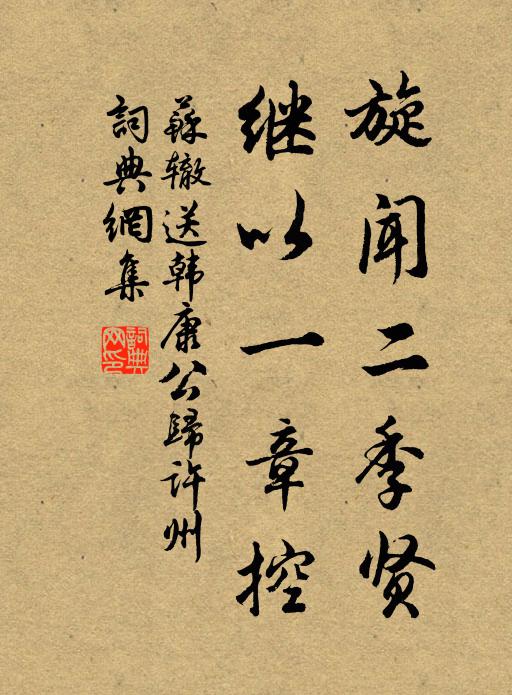 旋闻二季贤
继以一章控
蘇辙送韩康公歸许州
詞典網集
詞典
网印